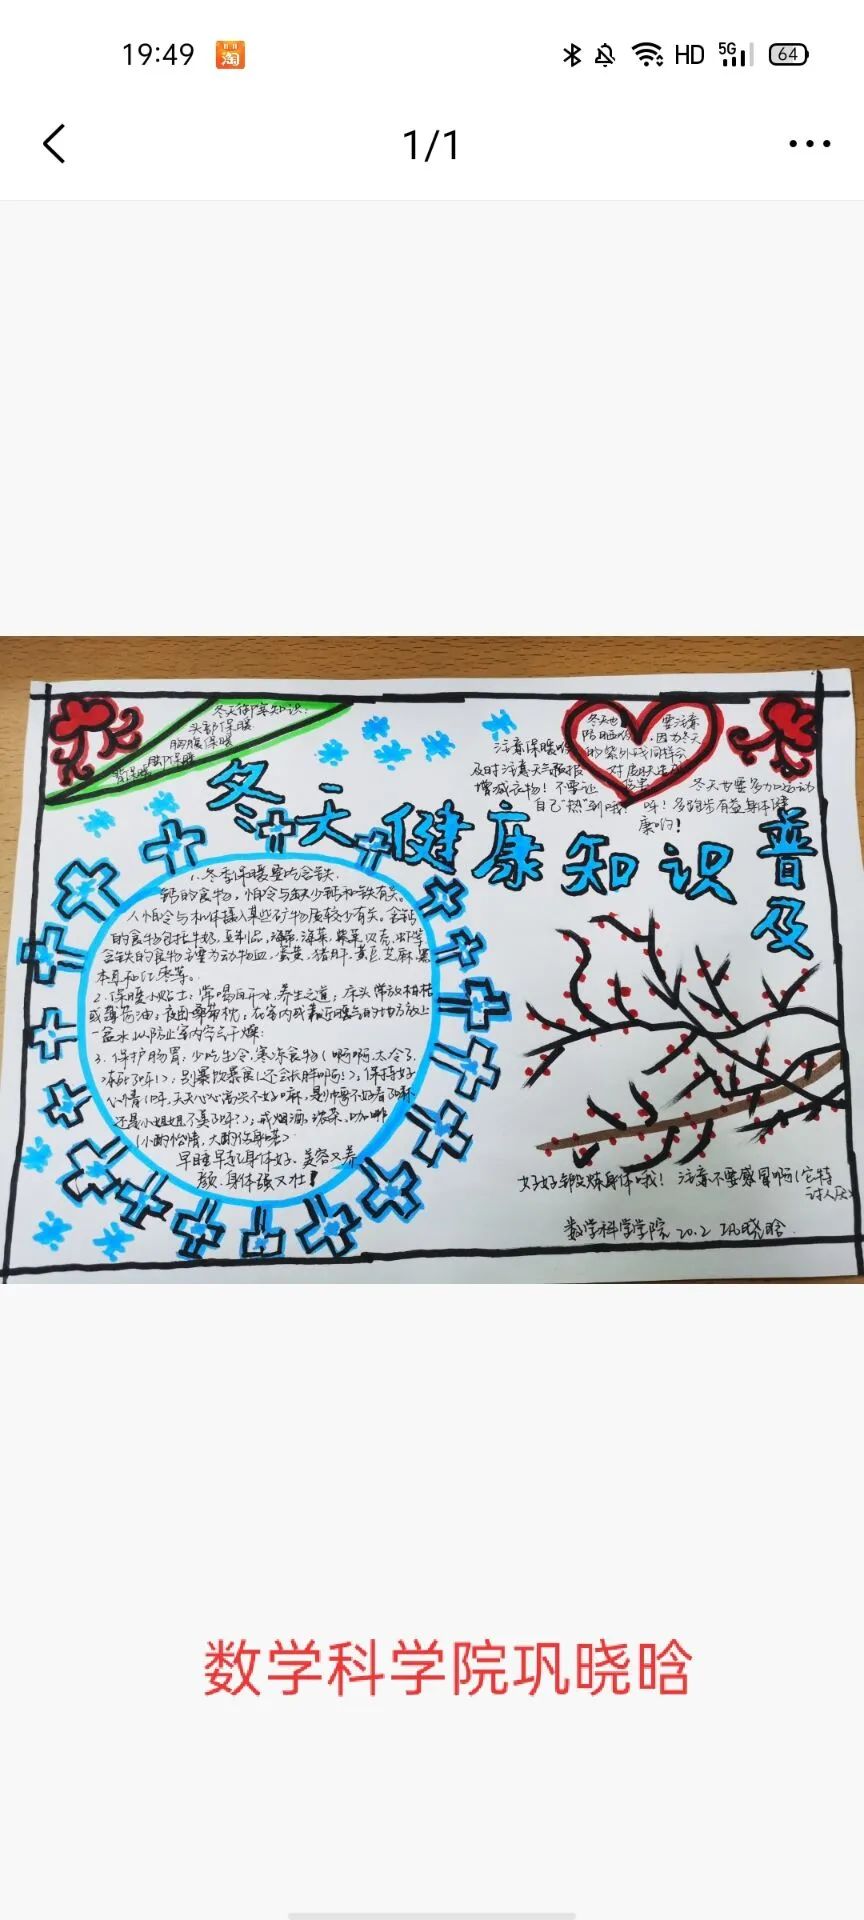 19:49
淘
HD
5G
64
1/1
冬天御寒知识:
头部保暖
胸腹保暖
脚部保暖
背保暖
冬天也
要注意
防晒哦
,因为冬天
的紫外线同样会
对皮肤造成
注意保暖哟
及时注意天气预报
增减衣物!不要让
自己"热"到哦!
冬天也要多加运动
呀!多跑步有益身体健
康哟!
冬天健康知识普及
1.冬季保暖要吃含铁
钙的食物,怕冷与缺少钙和铁有关。
人怕冷与机体摄入某些矿物质较少有关。含钙
的食物包括牛奶,豆制品,海带,海菜,紫菜,贝壳,虾等
含铁的食物主要为动物血,蛋黄,猪肝,黄豆,芝麻,黑
木耳和红枣等。
2.保暖小贴士:常喝白开水,养生之道;床头常放柑桔
或薄荷油;夜间桑蒂枕;在室内或靠近暖气的地方放上
一盆水以防止室内空气干燥.
3.保护肠胃:少吃生冷,寒冻食物(啊啊,太冷了,
冻死了呀!);别暴饮暴食(还会长胖啊啊!);保持好
心情(呀,天天心心高兴不好嘛,是帅哥不好看了嘛
还是小姐姐不美了呀?);戒烟酒,浓茶,咖啡
(小酌怡情,大酌伤身哦)
早睡早起身体好,美容又养
颜,身体强又壮!
好好锻炼身体哦!注意不要感冒啊(它特
讨人厌)
数学科学学院 20.2 巩晓晗
数学科学院巩晓晗